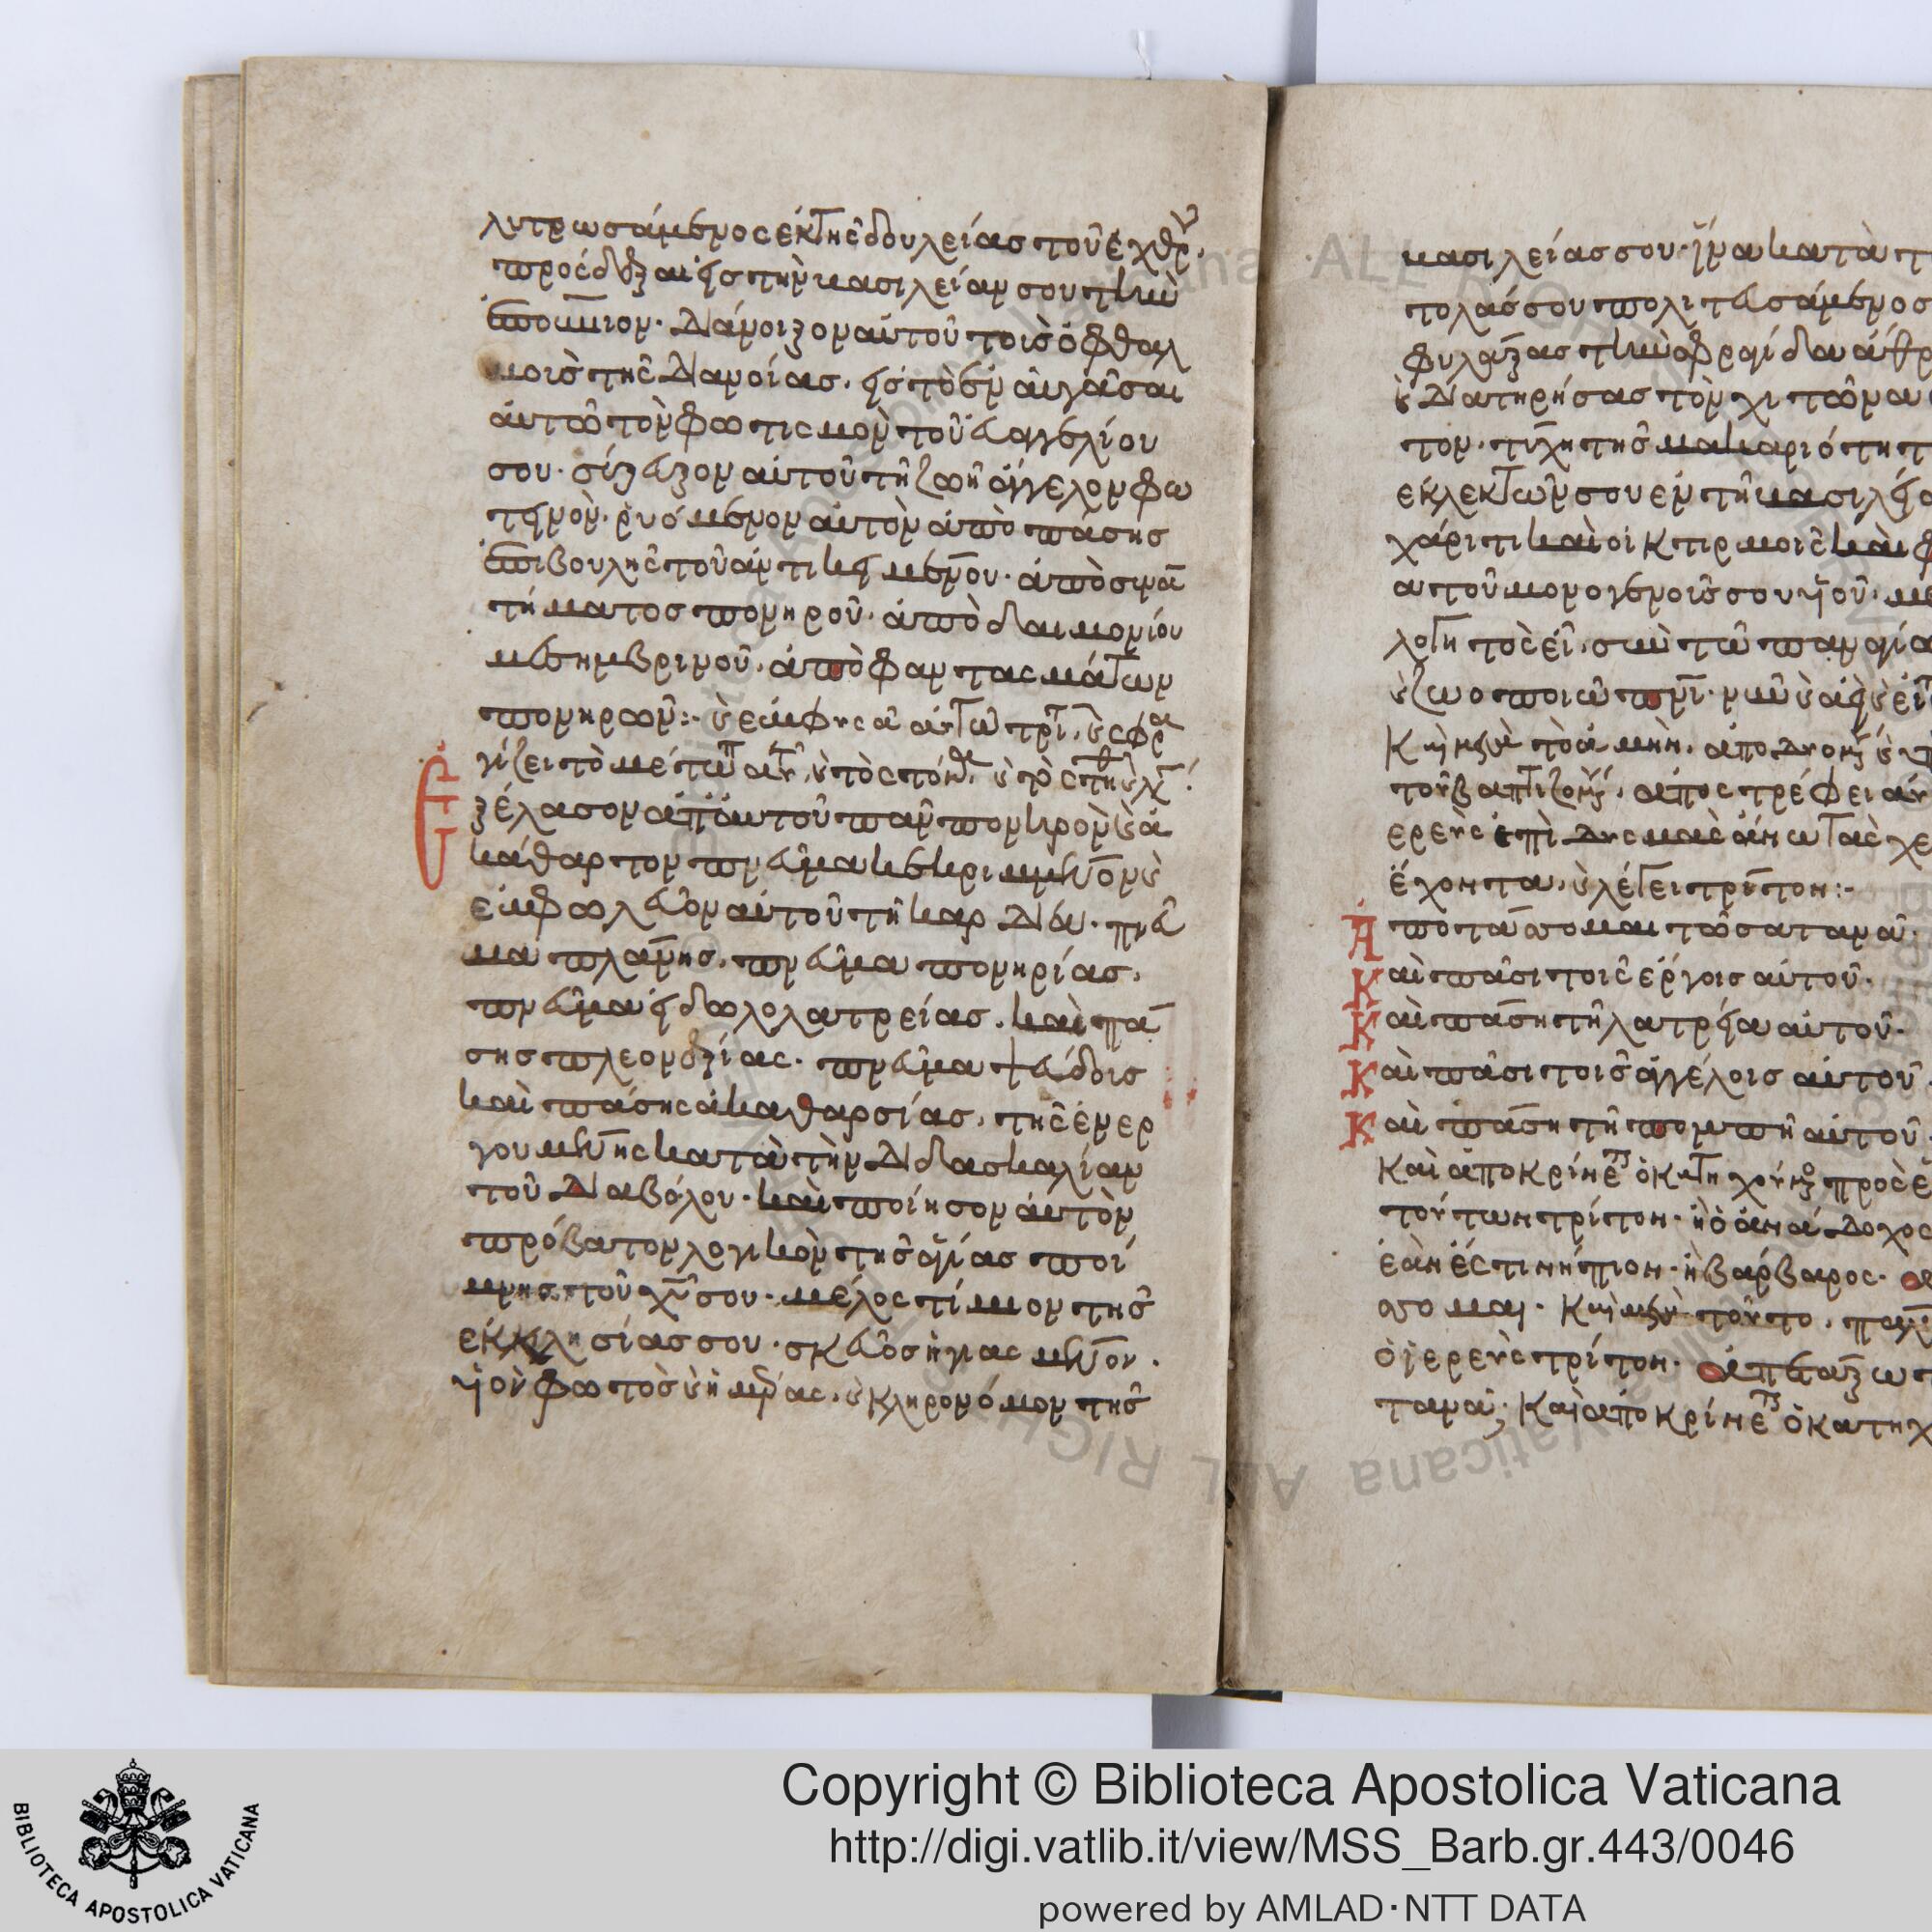 λυτρωσάμενος ἐκ τῆς δουλείας τοῦ ἐχθροῦ.
πρόσδεξαι εἰς τὴν βασιλείαν σου τὴν
ἐπουράνιον. διάνοιξον αὐτοῦ τοὺς ὀφθαλ
μοὺς τῆς διανοίας. εἰς τὸ ἐναυγάσαι
αὐτῶ τὸν φωτισμὸν τοῦ εὐαγγελίου
σου. σύζευξον αὐτοῦ τῆ ζωῆ ἄγγελον φω
τεινὸν. ῥυόμενον αὐτὸν ἀπὸ πάσης
ἐπιβουλῆς τοῦ ἀντικειμένου. ἀπὸ συναν
τήματος πονηροῦ. ἀπὸ δαιμονίου
μεσημβρινοῦ. ἀπὸ φαντασμάτων
πονηρῶν:
ξέλασον ἀπ' αὐτοῦ πᾶν πονηρὸν καὶ ἀ
κάθαρτον πνεῦμα κεκρυμμένον καὶ
ἐμφωλεῦον αὐτοῦ τῆ καρδία. πνεῦ
μα πλάνης. πνεῦμα πονηρίας.
πνεῦμα εἰδωλολατρείας. καὶ πά
σης πλεονεξίας. πνεῦμα ψεύδους
καὶ πάσης ἀκαθαρσίας. τῆς ἐνερ
γουμένης κατὰ τὴν διδασκαλίαν
τοῦ διαβόλου. καὶ ποίησον αὐτὸν
πρόβατον λογικὸν τῆς ἁγίας ποί
μνης τοῦ χυ σου. μέλος τίμιον τῆς
ἐκκλησίας σου. σκεῦος ἡγιασμένον.
υἱὸν φωτὸς καὶ ἡμέρας. καὶ κληρονόμον τῆς
βασιλείας σου. ἵνα κατὰ τὰς
πολάς σου πολιτευσάμενος
φυλάξας τὴν σφραγίδα
καὶ διατηρήσας τὸν χιτῶνα
τον. τύχη τῆς μακαριότητ
ἐκλεκτῶν σου ἐν τῆ βασιλεία
χάριτι καὶ οἰκτιρμοῖς καὶ
α τοῦ μονογενοῦς σου υἱοῦ. με
λογητὸς εἶ. σὺν τῶ παναγίω
καὶ ζωοποιῶ πνι. νῦν καὶ ἀεὶ καὶ εἰς
τὸ ἀμήν.
τοῦ βαπτιζομένου. ἀποστρέφει αὐ
ἔχοντα. καὶ λέγει τρίτον:
Ἀποτάσσομαι τῶ σατανᾶ.
Καὶ πᾶσι τοῖς ἔργοις αὐτοῦ.
Καὶ πάση τῆ λατρεία αὐτοῦ.
Καὶ πᾶσι τοῖς ἀγγέλοις αὐτοῦ.
Καὶ πάση τῆ πομπῆ αὐτοῦ.
Καὶ ἀποκρίνεται ὁ κατηχούμενος πρὸς ἓ
τούτων τρίτον. ἢ ὁ ἀνάδοχος
ἐὰν ἔστι νήπιον. ἢ βάρβαρος.
σσομαι. Καὶ μετὰ τοῦτο. πάλ
ὁ ἱερεὺς τρίτον. ἀπεταξω τ
τανᾶ; Καὶ ἀποκρίνεται ὁ κατηχ
BIBLIOTECA APOSTOLICA VATICANA
Copyright © Biblioteca Apostolica Vaticana
http://digi.vatlib.it/view/MSS_Barb.gr.443/0046
powered by AMLAD·NTT DATA